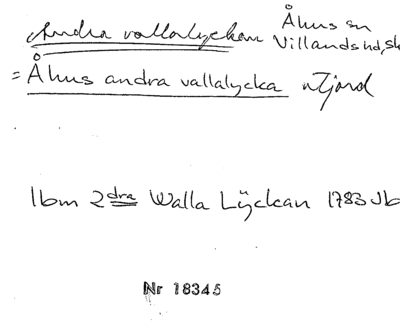 Andra vallalyckan Åhus sn
Villands hd, sk
= Åhus andra vallalycka utjord
lbm 2dra Walla Lÿckan 1783 Jb
Nr 18345